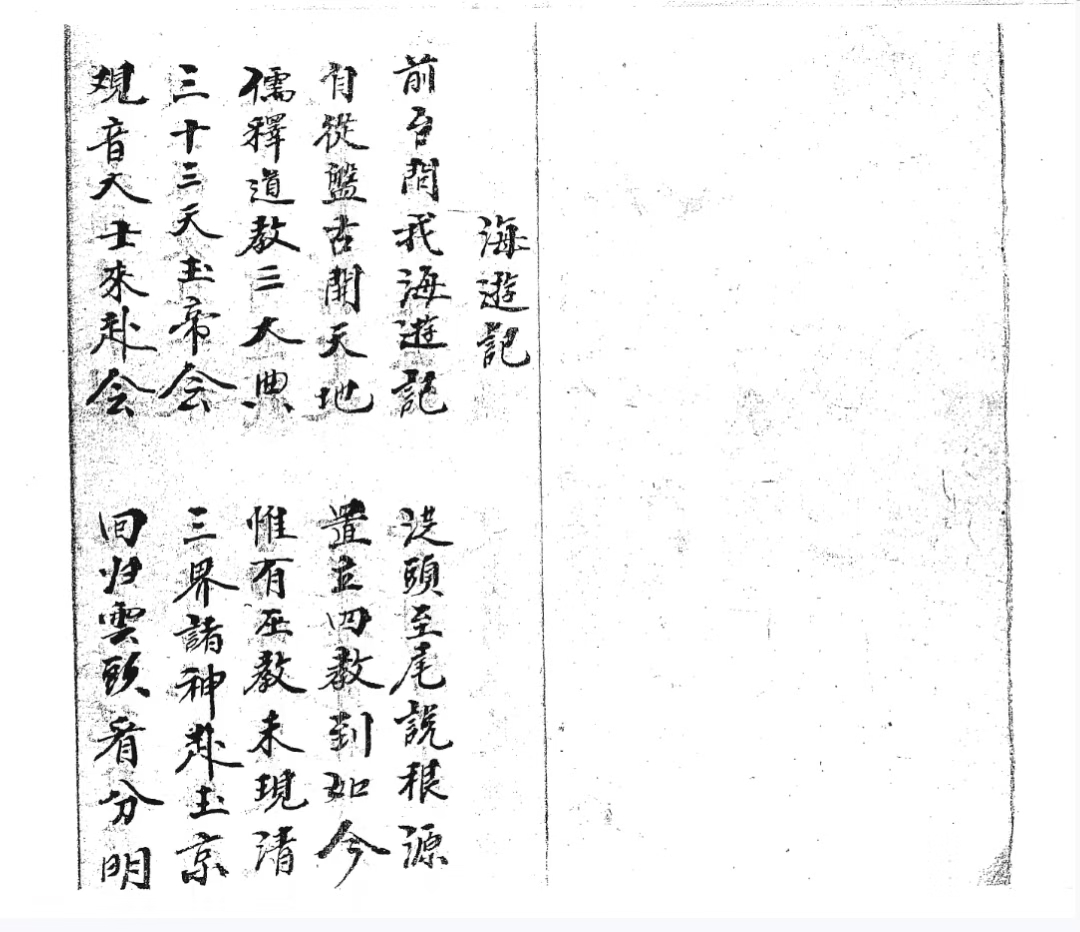 海遊記
前台問我海遊記 從頭至尾說根源
自從盤古開天地 置立四教到如今
儒釋道教三大典 惟有巫教未現清
三十三天玉帝会 三界諸神赴玉京
观音大士來赴会 回归雲頭看分明